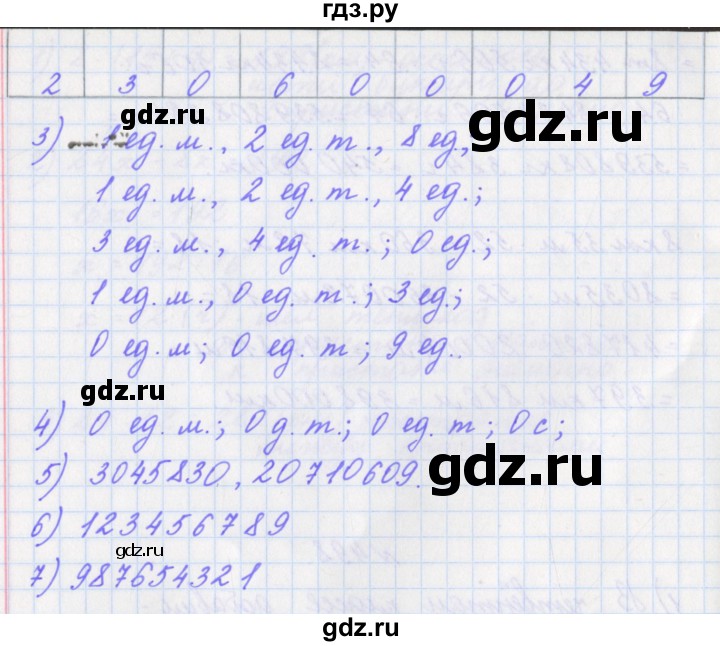 гдз.ру
2 3 0 6 0 0 0 4 9
gdz.ru
3) 1 ед. м., 2 ед. т., 8 ед,
1 ед. м., 2 ед. т., 4 ед.;
3 ед. м., 4 ед. т.; 0 ед.;
1 ед. м., 0 ед. т.; 3 ед.;
gdz.ru
0 ед. м; 0 ед. т; 9 ед..
gdz.ru
4) 0 ед. м.; 0 д. т.; 0 ед. т; 0 с;
5) 3045830, 20710609.
gdz.ru
6) 123456789
gdz.ru
7) 987654321
gdz.ru
gdz.ru